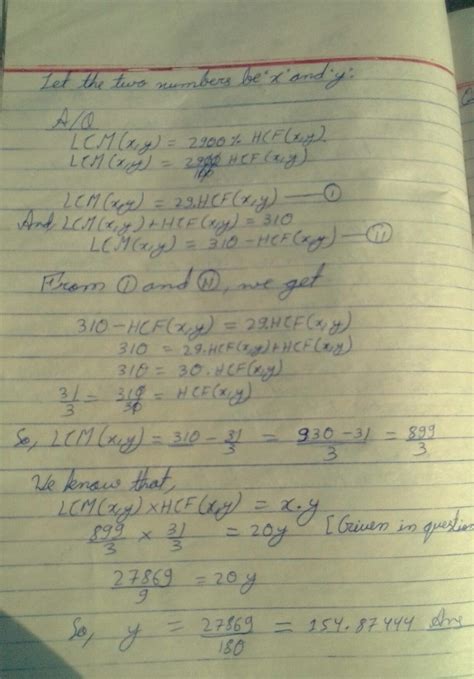 Let the two numbers be 'x' and 'y':
A/Q
LCM(x,y) = 2900% HCF(x,y)
LCM(x,y) = 2900/100 HCF(x,y)
LCM(x,y) = 29.HCF(x,y) — (i)
And LCM(x,y)+HCF(x,y) = 310
LCM(x,y) = 310 - HCF(x,y) — (ii)
From (i) and (ii), we get
310 - HCF(x,y) = 29.HCF(x,y)
310 = 29.HCF(x,y)+HCF(x,y)
310 = 30.HCF(x,y)
31/3 = 310/30 = HCF(x,y)
So, LCM(x,y) = 310 - 31/3 = 930-31/3 = 899/3
We know that,
LCM(x,y) × HCF(x,y) = x.y
899/3 × 31/3 = 20y [Given in question
27869/9 = 20y
So, y = 27869/180 = 154.87444 Ans